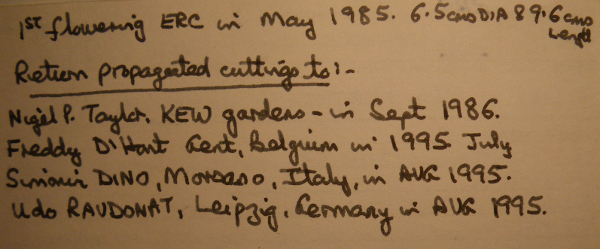 1ST flowering ERC in May 1985. 6.5cms DIA 89.6cms
Length
Return propagated cuttings to:-
Nigel P. Taylor. KEW gardens - in Sept 1986.
Freddy D'Hont Gent, Belgium in 1995 July
DINO, Morsano, Italy, in AUG 1995.
Udo RAUDONAT, Leipzig, Germany in AUG 1995.